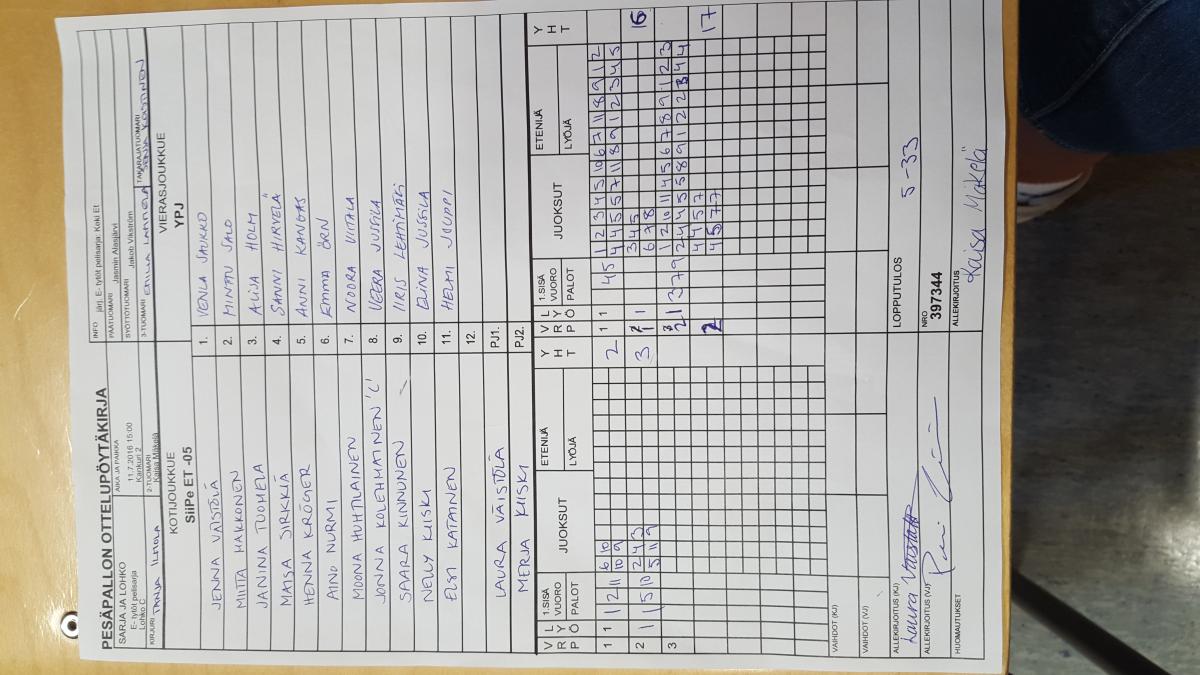 PESÄPALLON OTTELUPÖYTÄKIRJA
SARJA JA LOHKO
E- tytöt pelisarja
Lohko C
AIKA JA PAIKKA
11.7.2016 15:00
Kankuri 2
INFO järj. E- tytöt pelisarja: Keki Et
PÄÄTUOMARI Jasmin Alasjärvi
SYÖTTÖTUOMARI Jakob Vikström
KIRJURI TANJA ILMOLA
2-TUOMARI Kaisa Mäkelä
3-TUOMARI EMILIA LANNOLA
TAKARAJATUOMARI
KOTIJOUKKUE
SiiPe ET -05
VIERASJOUKKUE
YPJ
JENNA VÄISTÖLÄ 1. VENLA SAUKKO
MIITTA HAKKONEN 2. MINTTU SALO
JANINA TUOMELA 3. ALISA HOLM
MAISA SIRKKIÄ 4. SANNI HIRVELÄ
HENNA KRÖGER 5. ANNI KANGAS
AINO NURMI 6. EMMA ÖRN
MOONA HUHTILAINEN 7. NOORA VIITALA
JONNA KOLEHMAINEN 'C' 8. VEERA JUSSILA
SAARA KINNUNEN 9. IIRIS LEHTIMÄKI
NELLY KIISKI 10. ELINA JUSSILA
ELSI KATAINEN 11. HELMI JOUPPI
12.
LAURA VÄISTÖLÄ PJ1.
MERJA KIISKI PJ2.
V R P L Y Ö 1.SISÄ VUORO PALOT JUOKSUT ETENIJÄ LYÖJÄ Y H T V R P L Y Ö 1.SISÄ VUORO PALOT JUOKSUT ETENIJÄ LYÖJÄ Y H T
1 1 1 2 11 6 10 2 1 1 4 5 1 2 3 4 5 10 6 7 11 8 9 1 2
10 9 4 4 5 5 7 11 8 9 1 2 3 4 5
2 1 1 5 10 2 4 3 3 1 1 3 4 5 16
5 11 9 6 7 8
3 2 1 3 7 9 1 2 10 11 4 5 6 7 8 9 1 2 3
2 4 4 5 5 8 9 1 2 2 3 4 4
2 4 4 5 7 17
4 5 7 7
VAIHDOT (KJ)
VAIHDOT (VJ)
LOPPUTULOS 5 - 33
ALLEKIRJOITUS (KJ)
Laura Väistölä
ALLEKIRJOITUS (VJ)
NRO
397344
HUOMAUTUKSET
ALLEKIRJOITUS
Kaisa Mäkelä